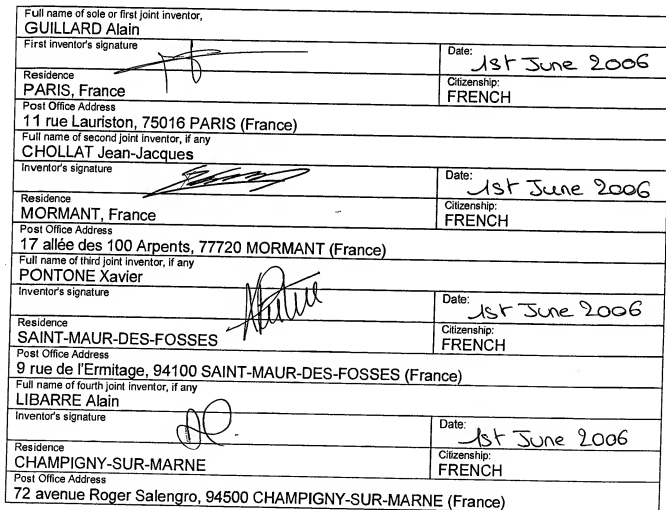 Full name of sole or first joint inventor,
GUILLARD Alain
First inventor's signature
Date:
1st June 2006
Residence
PARIS, France
Citizenship:
FRENCH
Post Office Address
11 rue Lauriston, 75016 PARIS (France)
Full name of second joint inventor, if any
CHOLLAT Jean-Jacques
Inventor's signature
Date:
1st June 2006
Residence
MORMANT, France
Citizenship:
FRENCH
Post Office Address
17 allée des 100 Arpents, 77720 MORMANT (France)
Full name of third joint inventor, if any
PONTONE Xavier
Inventor's signature
Date:
1st June 2006
Residence
SAINT-MAUR-DES-FOSSES
Citizenship:
FRENCH
Post Office Address
9 rue de l'Ermitage, 94100 SAINT-MAUR-DES-FOSSES (France)
Full name of fourth joint inventor, if any
LIBARRE Alain
Inventor's signature
Date:
1st June 2006
Residence
CHAMPIGNY-SUR-MARNE
Citizenship:
FRENCH
Post Office Address
72 avenue Roger Salengro, 94500 CHAMPIGNY-SUR-MARNE (France)